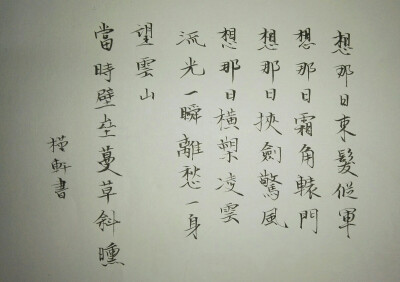 想那日束髮從軍
想那日霜角轅門
想那日挾劍驚風
想那日橫槊凌雲
流光一瞬離愁一身
望雲山
當時壁垒蔓草斜曛
書